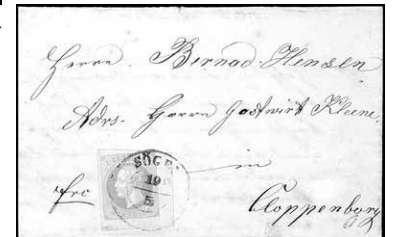 Herrn. Bernad Hensen
Adrs. Herrn Gastwirt Kleene,
SÖGEL
19
5
in
frc
Cloppenborg